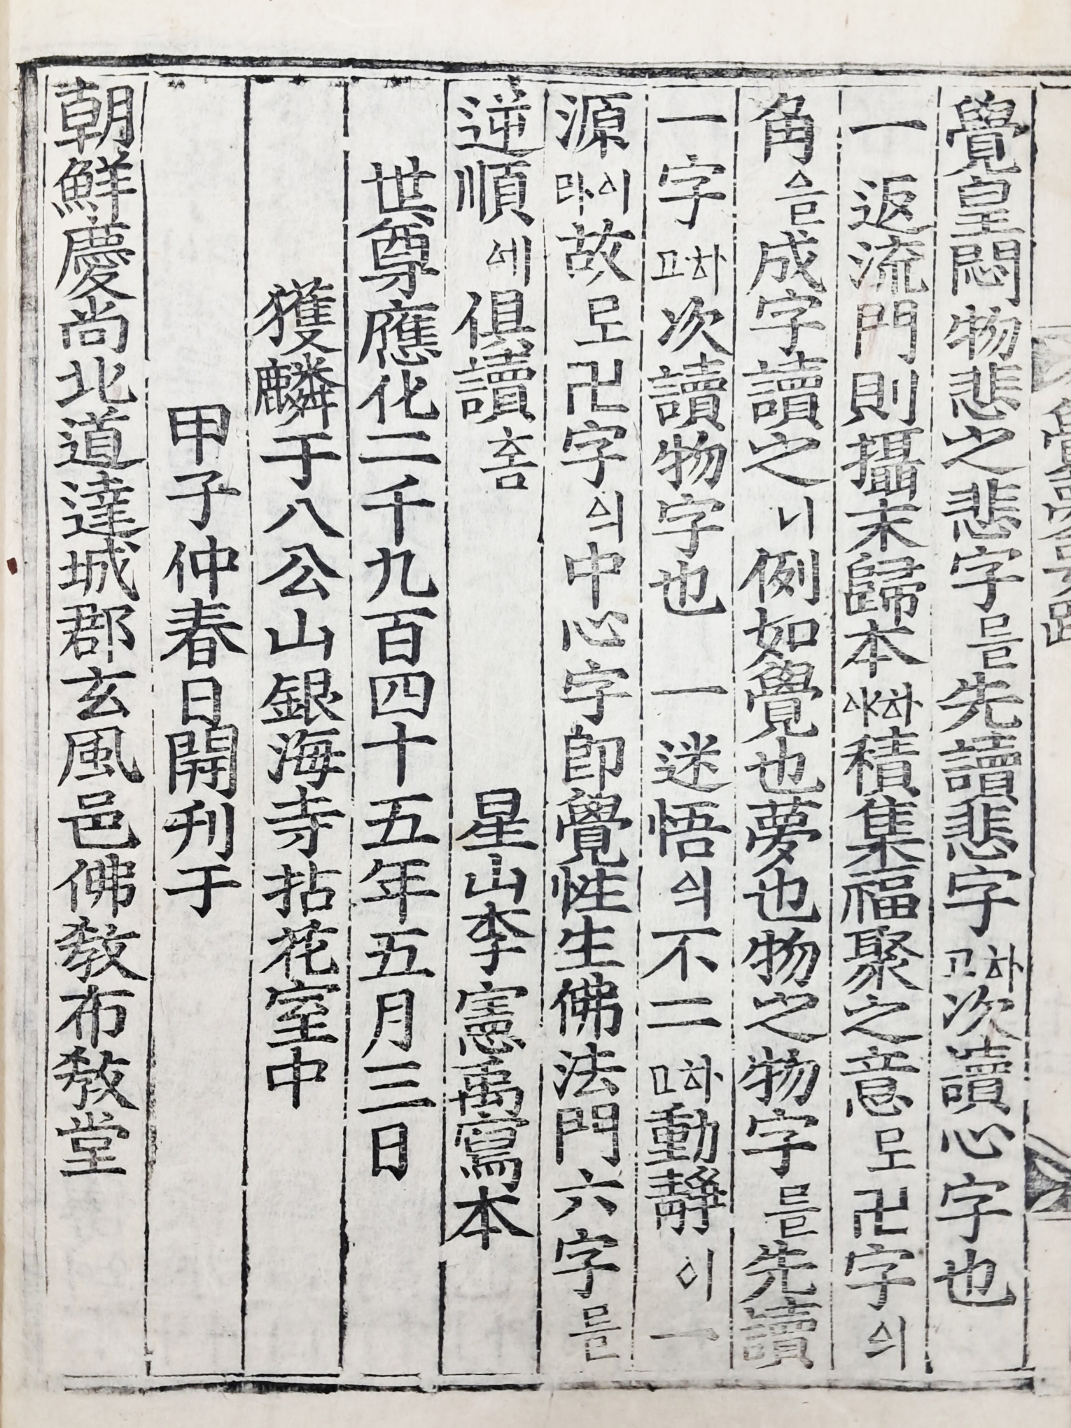 覺皇悶物悲之悲字를先讀悲字하고次讀心字也
一 返流門則攝末歸本하야積集福聚之意로卍字의
角을成字讀之니例如覺也夢也物之物字를先讀
一字하고次讀物字也 一 迷悟의不二하며動靜이一
源이라故로卍字의中心字卽覺性生佛法門六字를
逆順에俱讀홈 星山李憲萬寫本
世尊應化二千九百四十五年五月三日
獲麟于八公山銀海寺拈花室中
甲子仲春日開刊于
朝鮮慶尚北道達城郡玄風邑佛教布教堂